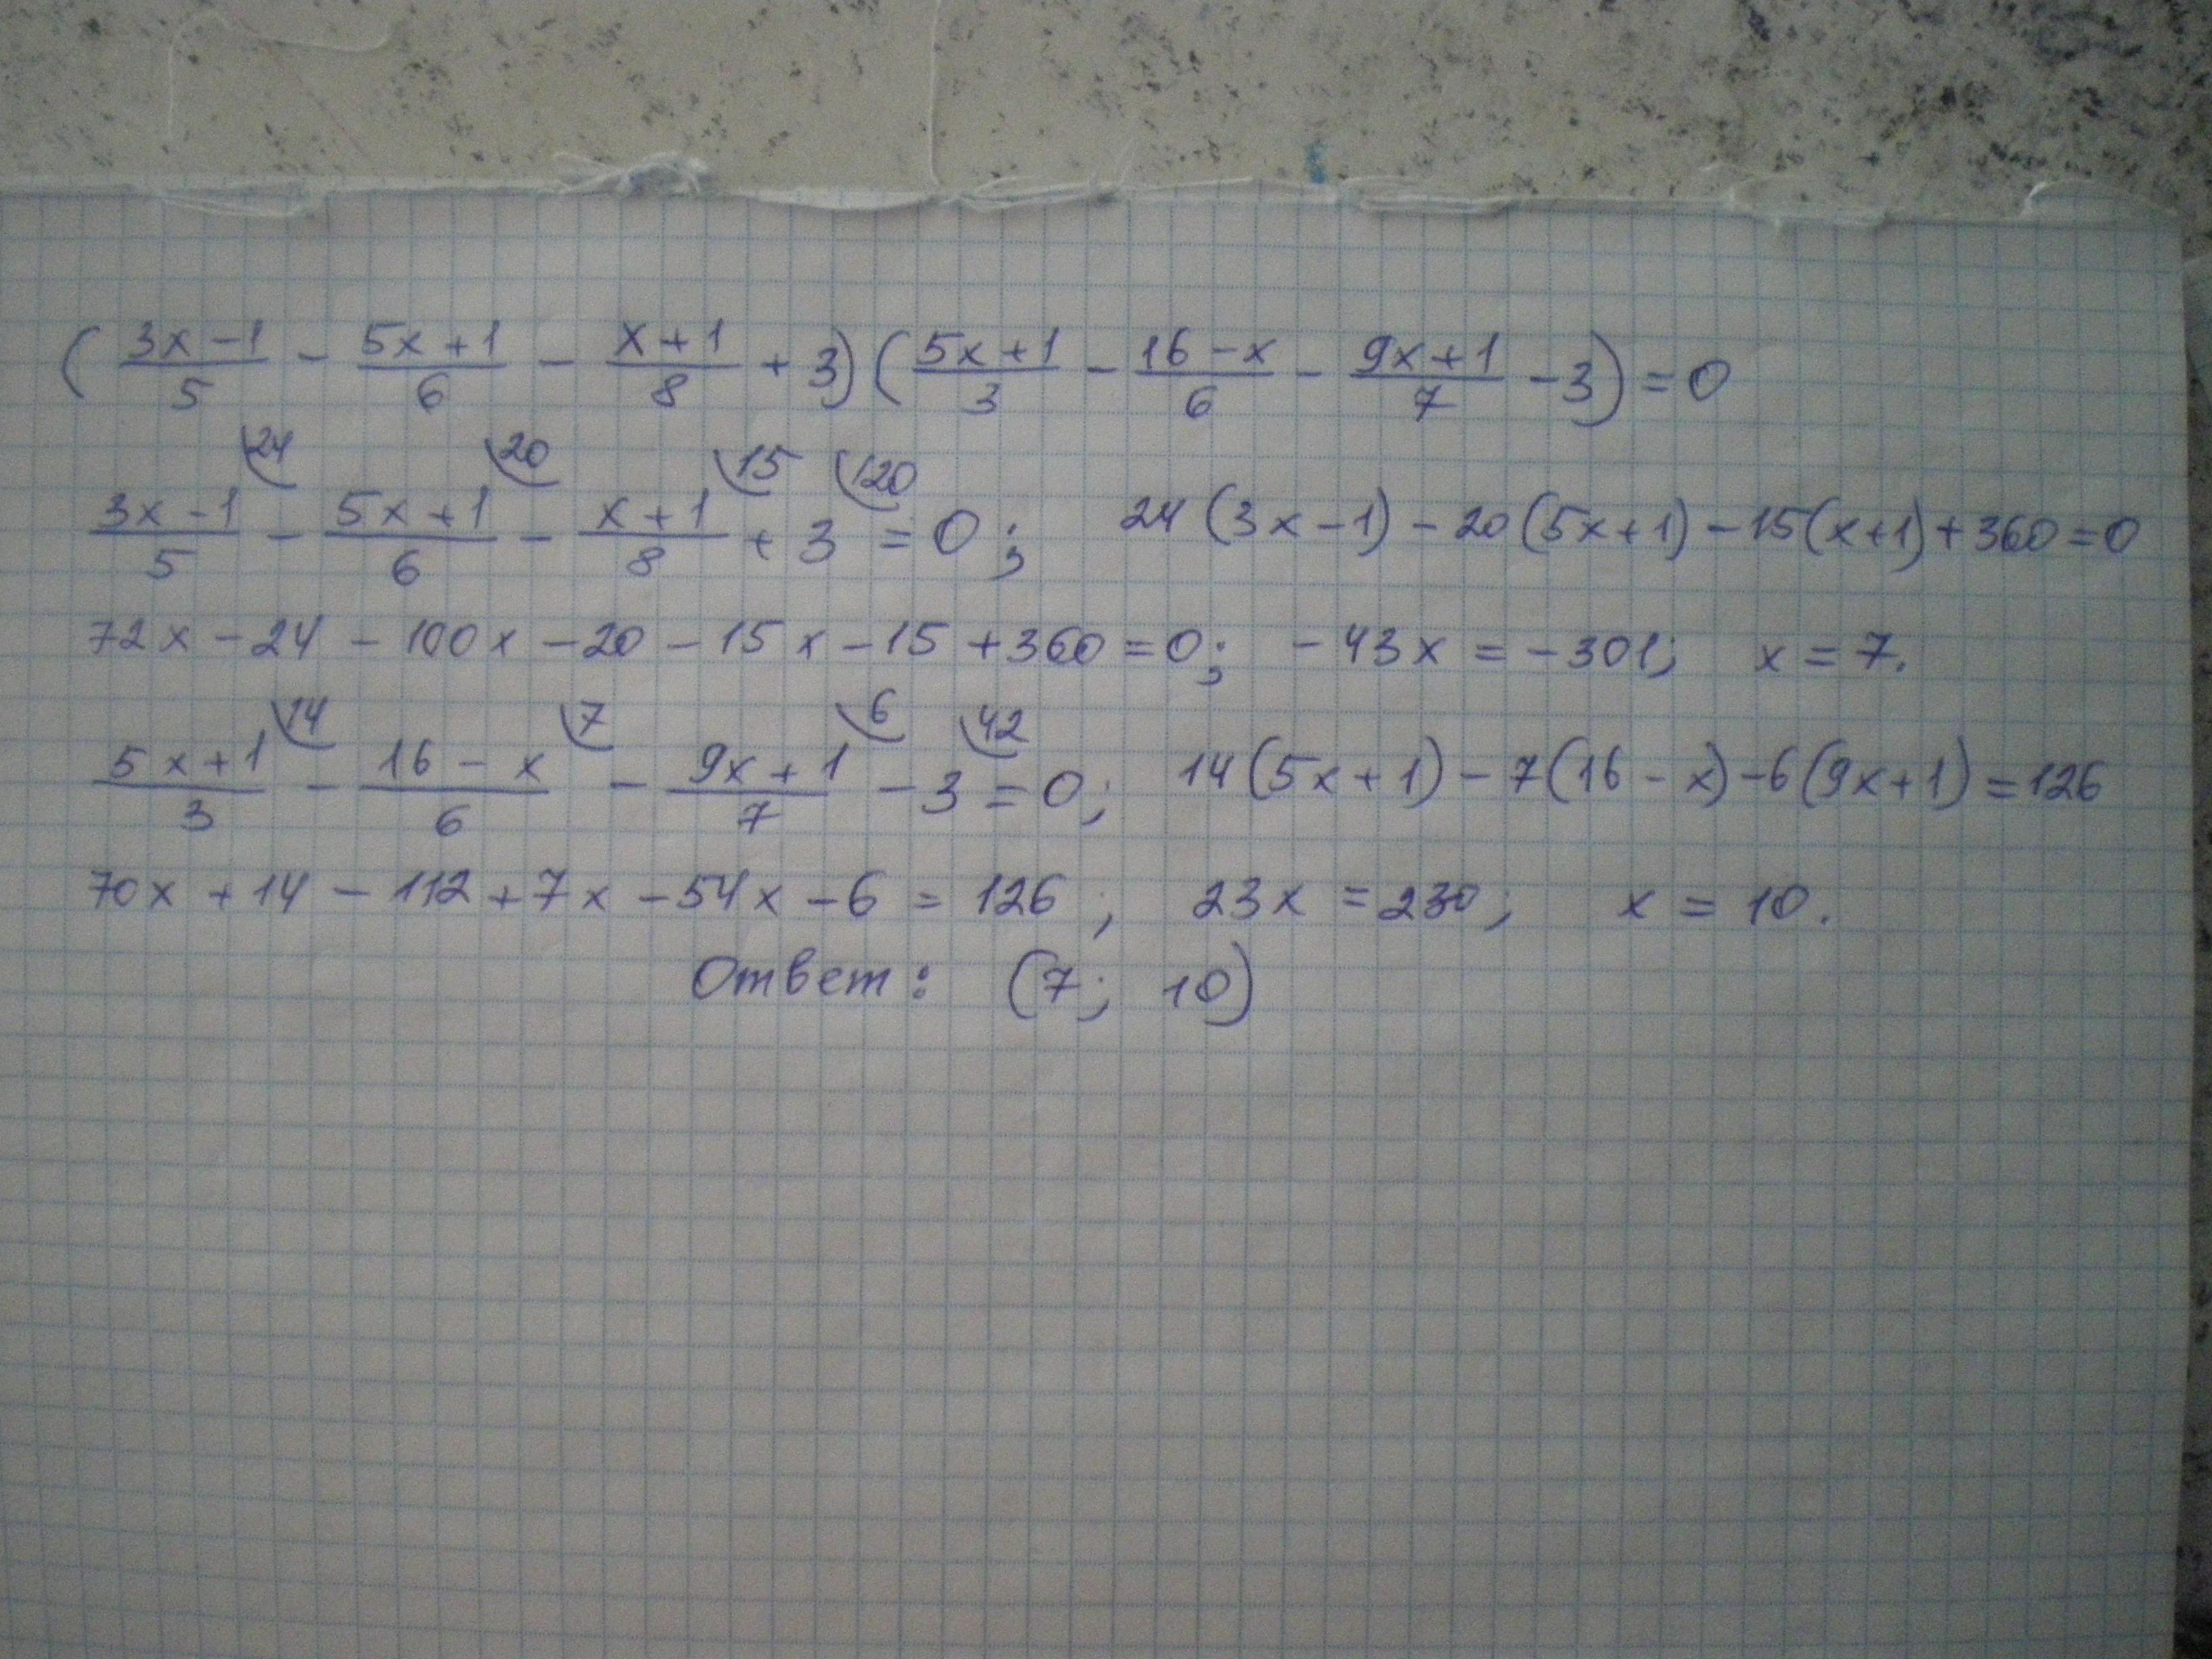 ( (3x-1)/5 - (5x+1)/6 - (x+1)/8 + 3 ) ( (5x+1)/3 - (16-x)/6 - (9x+1)/7 - 3 ) = 0
24 20 15 120
(3x-1)/5 - (5x+1)/6 - (x+1)/8 + 3 = 0; 24(3x-1) - 20(5x+1) - 15(x+1) + 360 = 0
72x - 24 - 100x - 20 - 15x - 15 + 360 = 0; -43x = -301; x = 7.
14 7 6 42
(5x+1)/3 - (16-x)/6 - (9x+1)/7 - 3 = 0; 14(5x+1) - 7(16-x) - 6(9x+1) = 126
70x + 14 - 112 + 7x - 54x - 6 = 126; 23x = 230; x = 10.
Ответ: (7; 10)